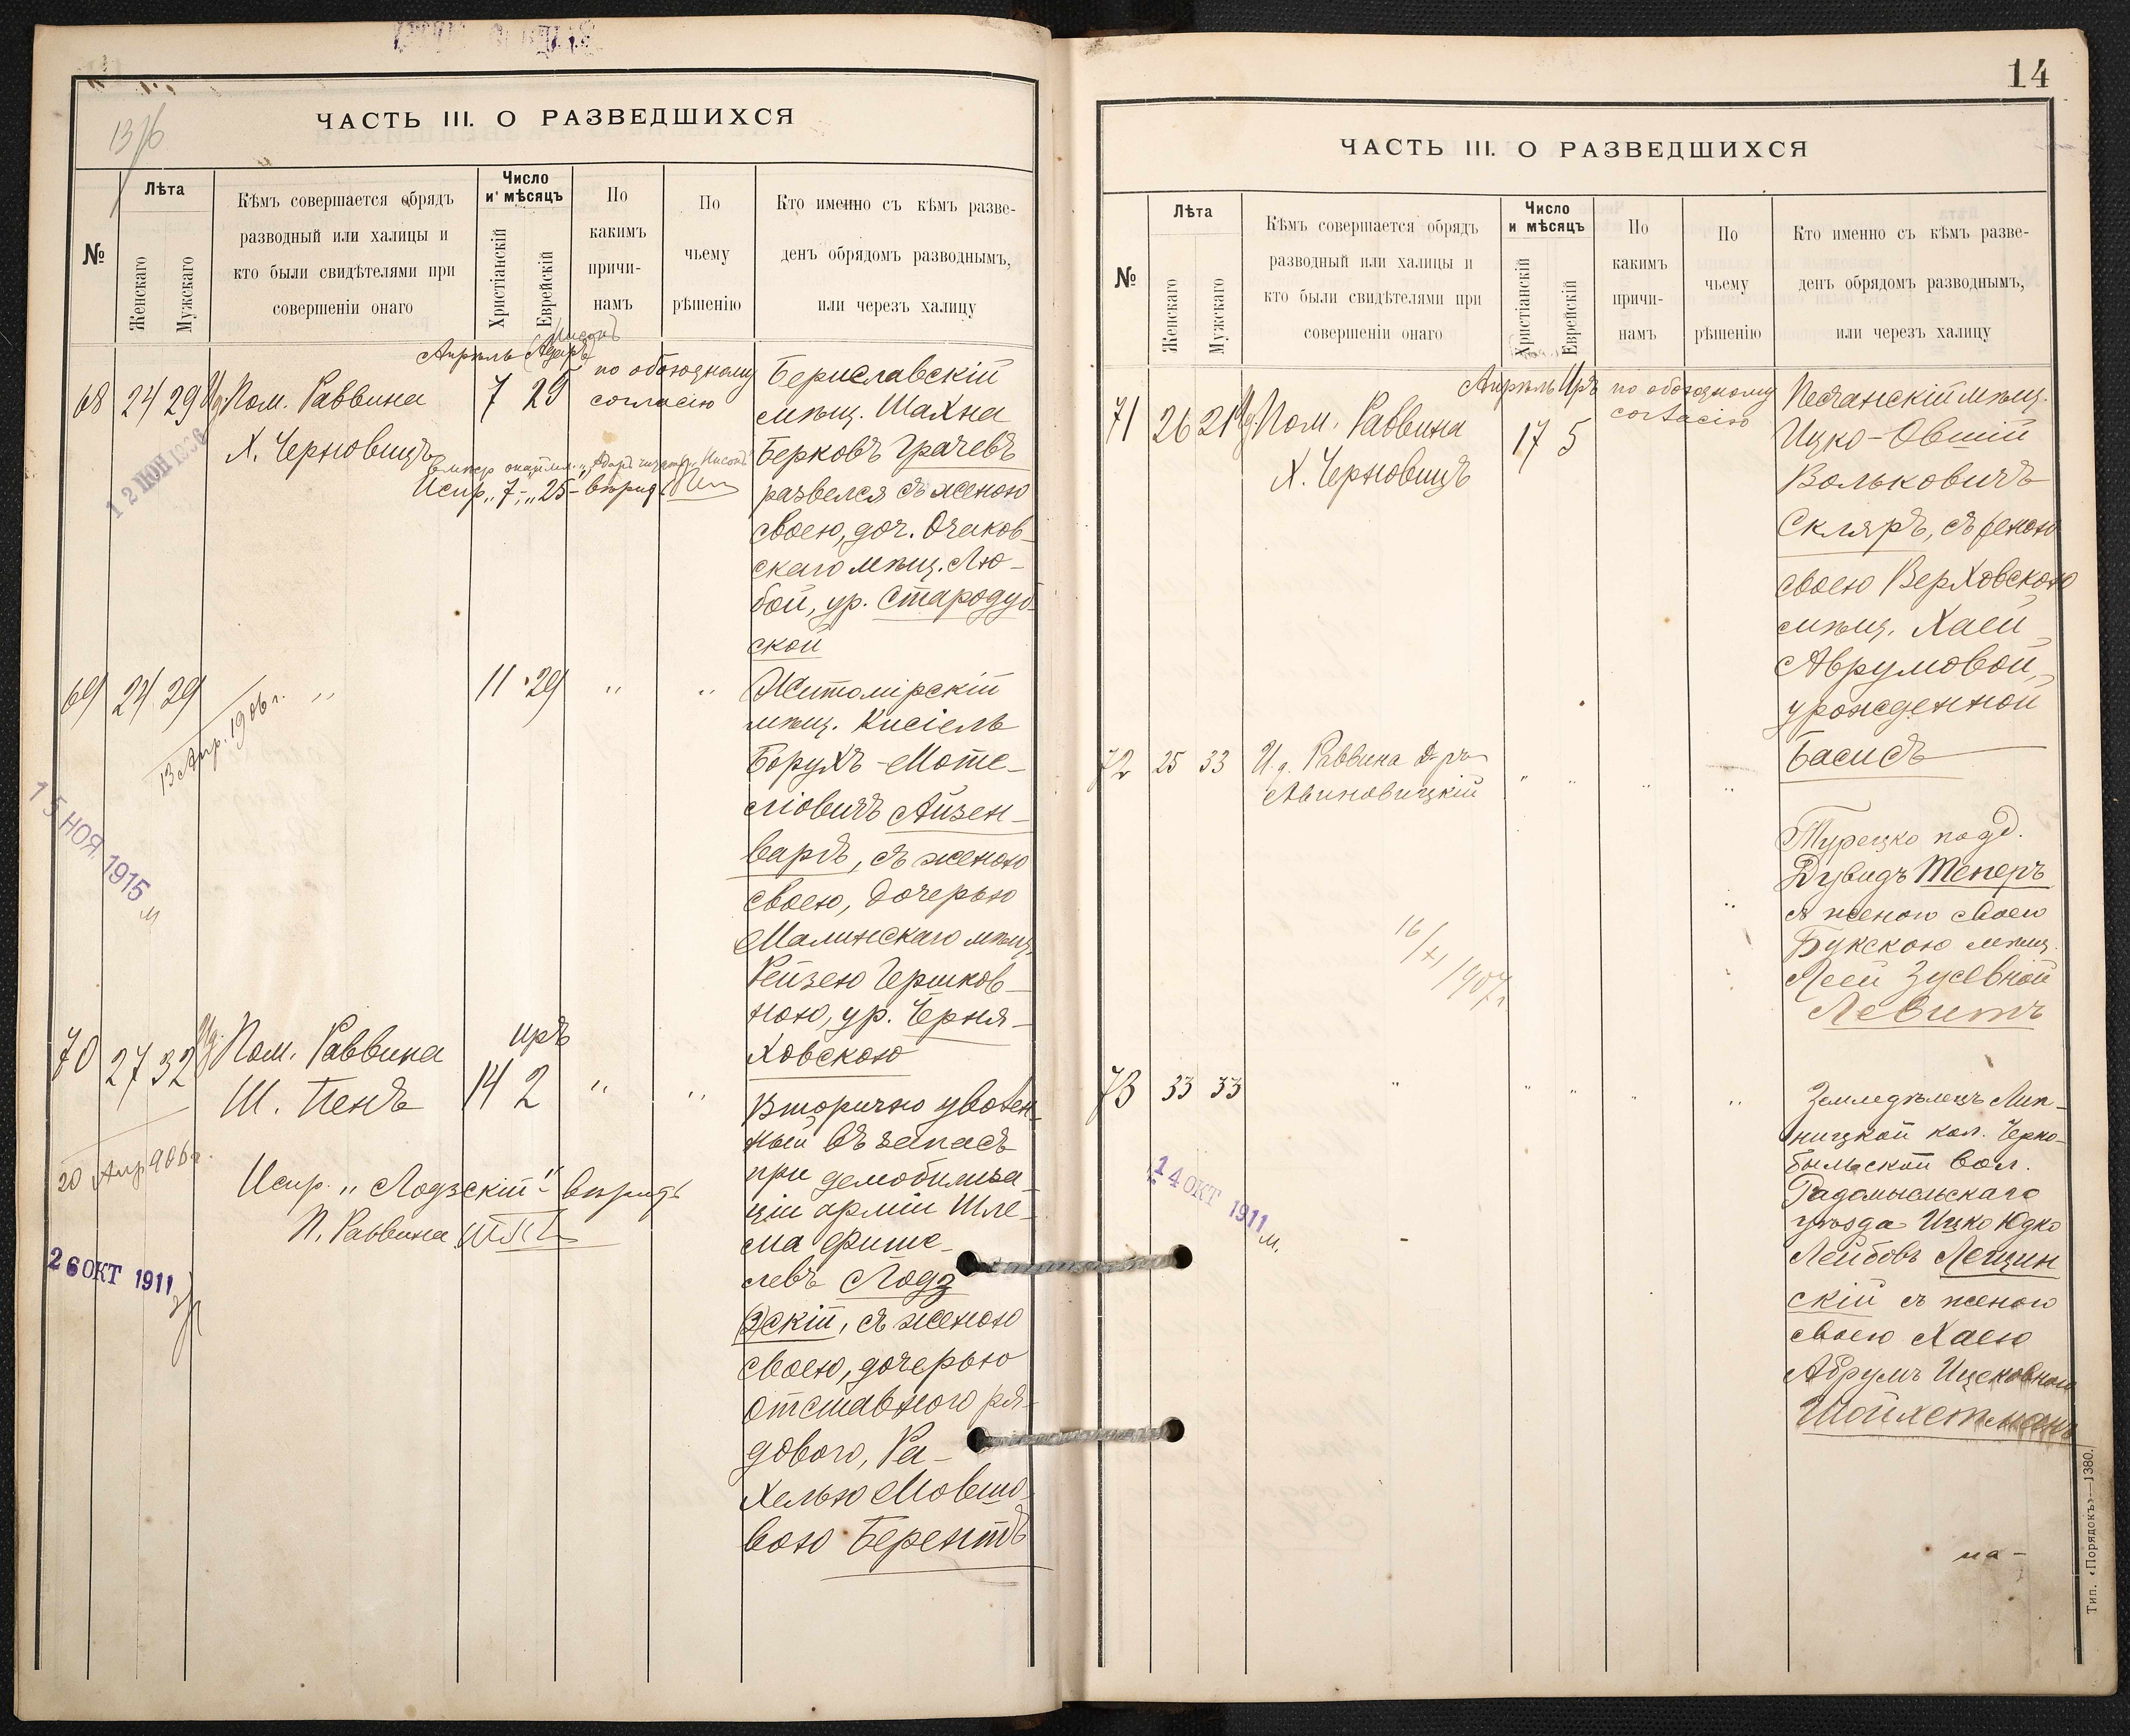 ЧАСТЬ III. О РАЗВЕДШИХСЯ
13/6
№
Лѣта
Женскаго
Мужскаго
Кѣмъ совершается обрядъ
разводный или халицы и
кто были свидѣтелями при
совершеніи онаго
Число
и мѣсяцъ
Христіанскій
Еврейскій
По
какимъ
причи-
намъ
По
чьему
рѣшенію
Кто именно съ кѣмъ разве-
денъ обрядомъ разводнымъ,
или черезъ халицу
Апрѣль (Адаръ) Нисонъ
68 24 29 И.д. Пом. Раввина 7 25 по обоюдному
согласію
Х. Черновицъ
Испр. „7„-„25„- вѣрить
12 ІЮН 1906
Бериславскій
мѣщ. Шахна
Берковъ Грачевъ
развелся съ женою
своею, доч. Очаков-
скаго мѣщ. Лю-
бой, ур. Стародуб-
ской
69 24 29 „ 11 29 „ „
13 Апр. 1906 г.
15 НОЯ 1915
Житомірскій
мѣщ. Кисіель
Борухъ-Моте-
ліовичъ Айзен-
варгъ, съ женою
своею, дочерью
Малинскаго мѣщ.
Рейзею Гершков-
ною, ур. Черня-
ховскою
иръ
70 27 32 И.д. Пом. Раввина 14 2 „ „
Ш. Пенъ
20 Апр 906 г.
Испр. „Лодзскій„- вѣрить
П. Раввина
26 ОКТ 1911
Вторично уволен-
ный въ запасъ
при демобилиза-
ціи арміи Шле-
ма Фите-
левъ Лодз
(з)скій, съ женою
своею, дочерью
отставного ря-
дового, Ра-
хелью Мовшо-
вою Берентъ
14
ЧАСТЬ III. О РАЗВЕДШИХСЯ
№
Лѣта
Женскаго
Мужскаго
Кѣмъ совершается обрядъ
разводный или халицы и
кто были свидѣтелями при
совершеніи онаго
Число
и мѣсяцъ
Христіанскій
Еврейскій
По
какимъ
причи-
намъ
По
чьему
рѣшенію
Кто именно съ кѣмъ разве-
денъ обрядомъ разводнымъ,
или черезъ халицу
Апрѣль Иръ
71 26 21 И.д. Пом. Раввина 17 5 по обоюдному
согласію
Х. Черновицъ
Песчанскій мѣщ.
Ицко-Овшій
Вольковичъ
Скляръ, съ женою
своею Верховскою
мѣщ. Хаей
Аврумовой,
урожденной
Басисъ
72 25 33 И.д. Раввина Д-ръ „ „ „ „
Авиновицкій
16/XI 1907 г.
Турецко подд.
Дувидъ Теперъ
съ женою своею
Букскою мѣщ.
Леей Зусевной
Левитъ
73 33 33 „ „ „ „ „
14 ОКТ 1911
м.
Земледѣлецъ Лип-
ницкой кол. Черно-
быльской вол.
Радомысльскаго
уѣзда Ицко Юдко
Лейбовъ Лещин
скій съ женою
своею Хаею
Абрумъ Ицековною
Шойхетманъ
на-
Тип. «Порядокъ»—1380.